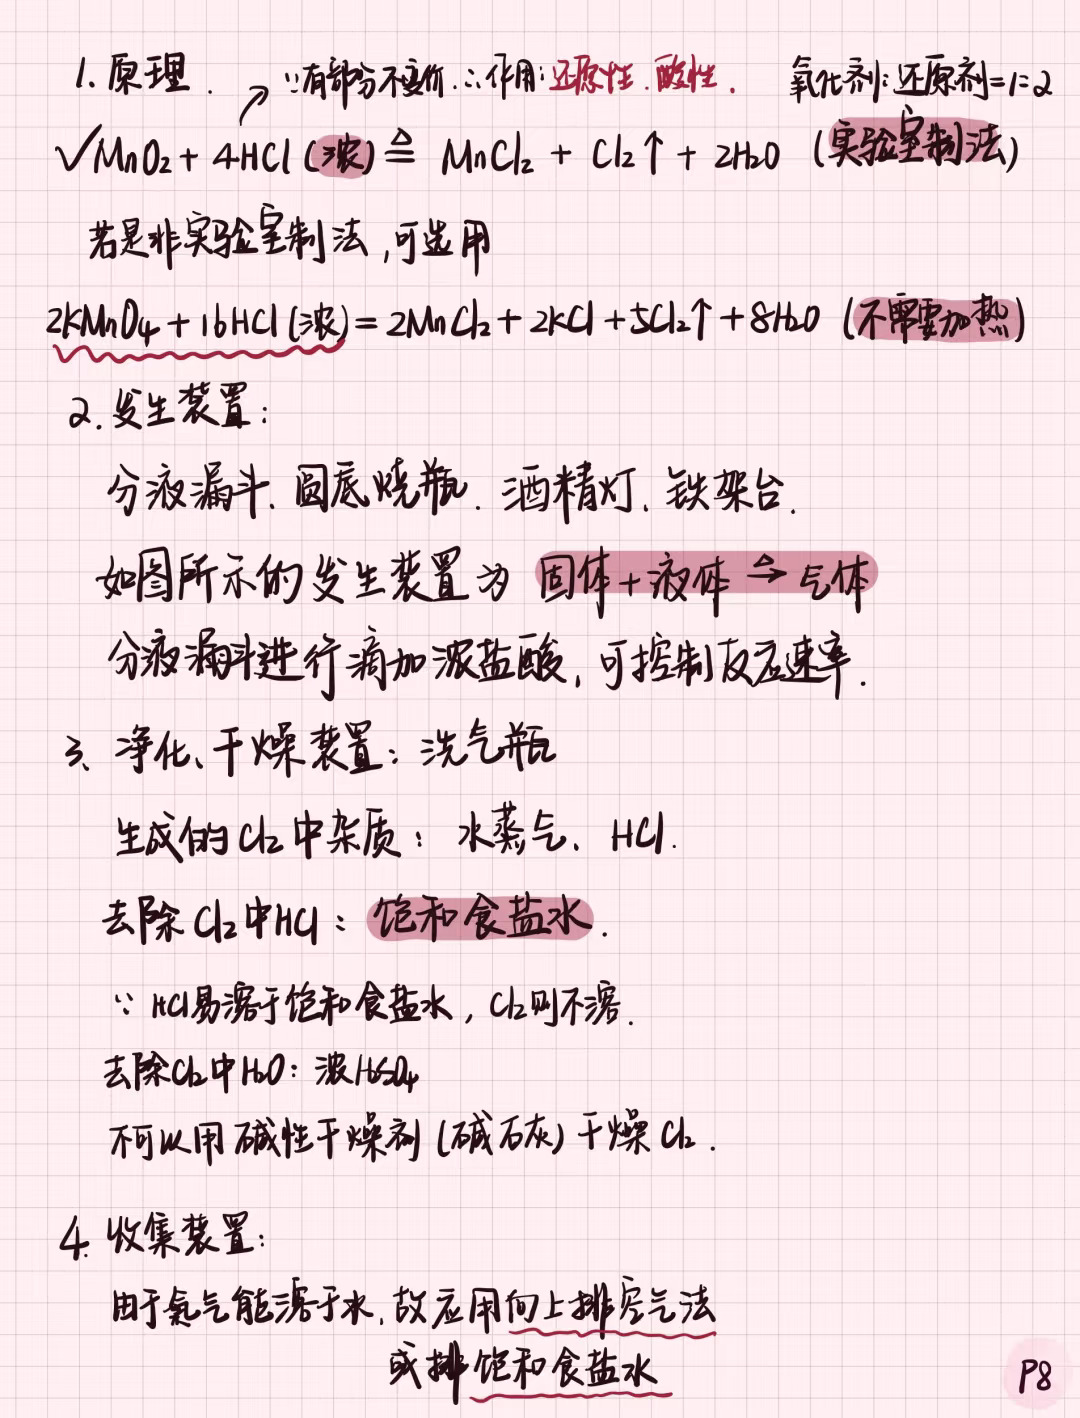 1. 原理. ∵有部分不变价.∴作用:还原性.酸性. 氧化剂:还原剂=1:2
√MnO₂ + 4HCl (浓) ≜ MnCl₂ + Cl₂↑ + 2H₂O (实验室制法)
若是非实验室制法,可选用
2KMnO₄ + 16HCl (浓) = 2MnCl₂ + 2KCl + 5Cl₂↑ + 8H₂O (不需要加热)
2. 发生装置:
分液漏斗、圆底烧瓶、酒精灯、铁架台.
如图所示的发生装置为 固体+液体 →△ 气体
分液漏斗进行滴加浓盐酸,可控制反应速率.
3、净化、干燥装置:洗气瓶
生成的Cl₂中杂质:水蒸气、HCl.
去除Cl₂中HCl:饱和食盐水.
∵ HCl易溶于饱和食盐水,Cl₂则不溶.
去除Cl₂中H₂O:浓H₂SO₄
不可以用碱性干燥剂(碱石灰)干燥Cl₂.
4. 收集装置:
由于氯气能溶于水,故应用向上排空气法
或排饱和食盐水
P8